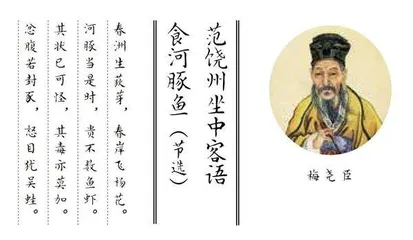 梅尧臣
范饶州坐中客语
食河豚鱼（节选）
春洲生荻芽，春岸飞杨花。
河豚当是时，贵不数鱼虾。
其状已可怪，其毒亦莫加。
忿腹若封豕，怒目犹吴蛙。